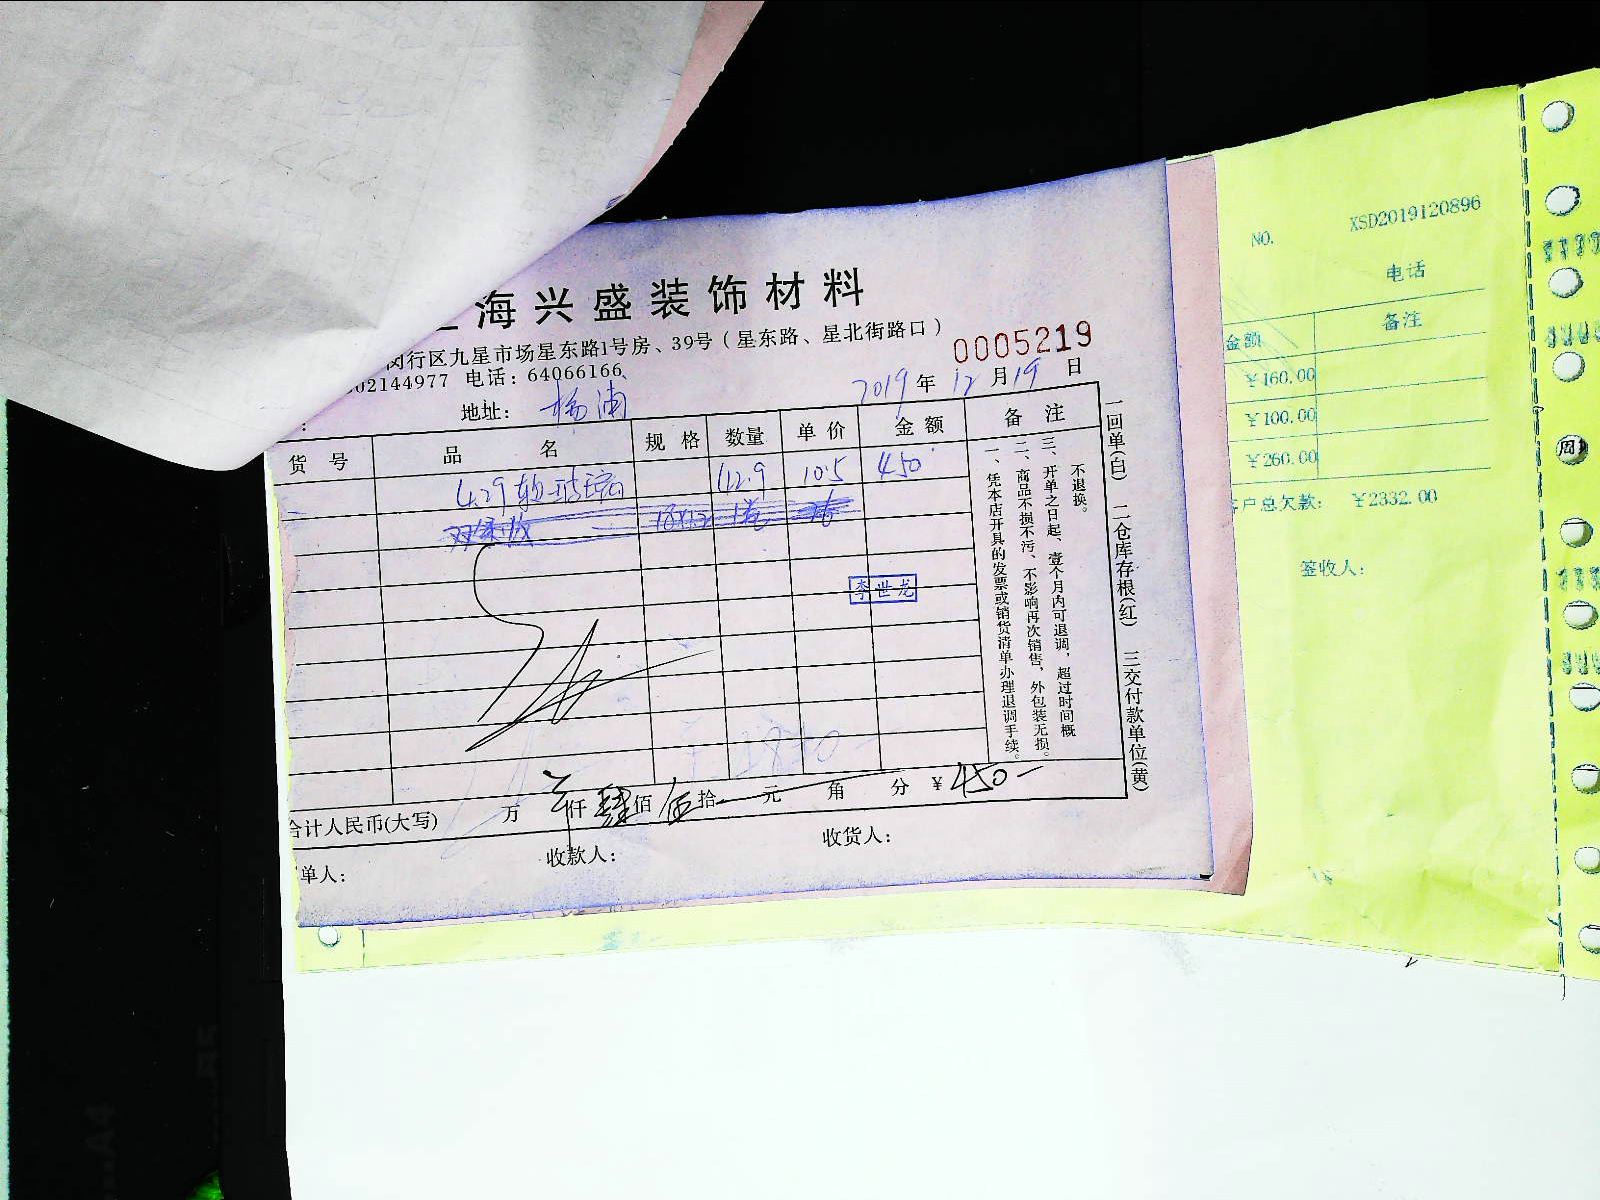 海兴盛装饰材料
闵行区九星市场星东路1号房、39号（星东路、星北街路口）
02144977 电话：64066166
0005219
2019年12月19日
地址：杨浦
货号 品名 规格 数量 单价 金额 备注
4.29软玻璃 42.9 10.5 450
1卷
李世龙
一、凭本店开具的发票或销货清单办理退调手续。
二、商品不损不污、不影响再次销售，外包装无损。
三、开单之日起、壹个月内可退调，超过时间概不退换。
一回单(白) 二仓库存根(红) 三交付款单位(黄)
合计人民币(大写) 万 仟肆佰伍拾 元 角 分 ¥450-
单人： 收款人： 收货人：
NO. XSD2019120896
电话
金额 备注
¥160.00
¥100.00
¥260.00
户总欠款： ¥2332.00
签收人：
周